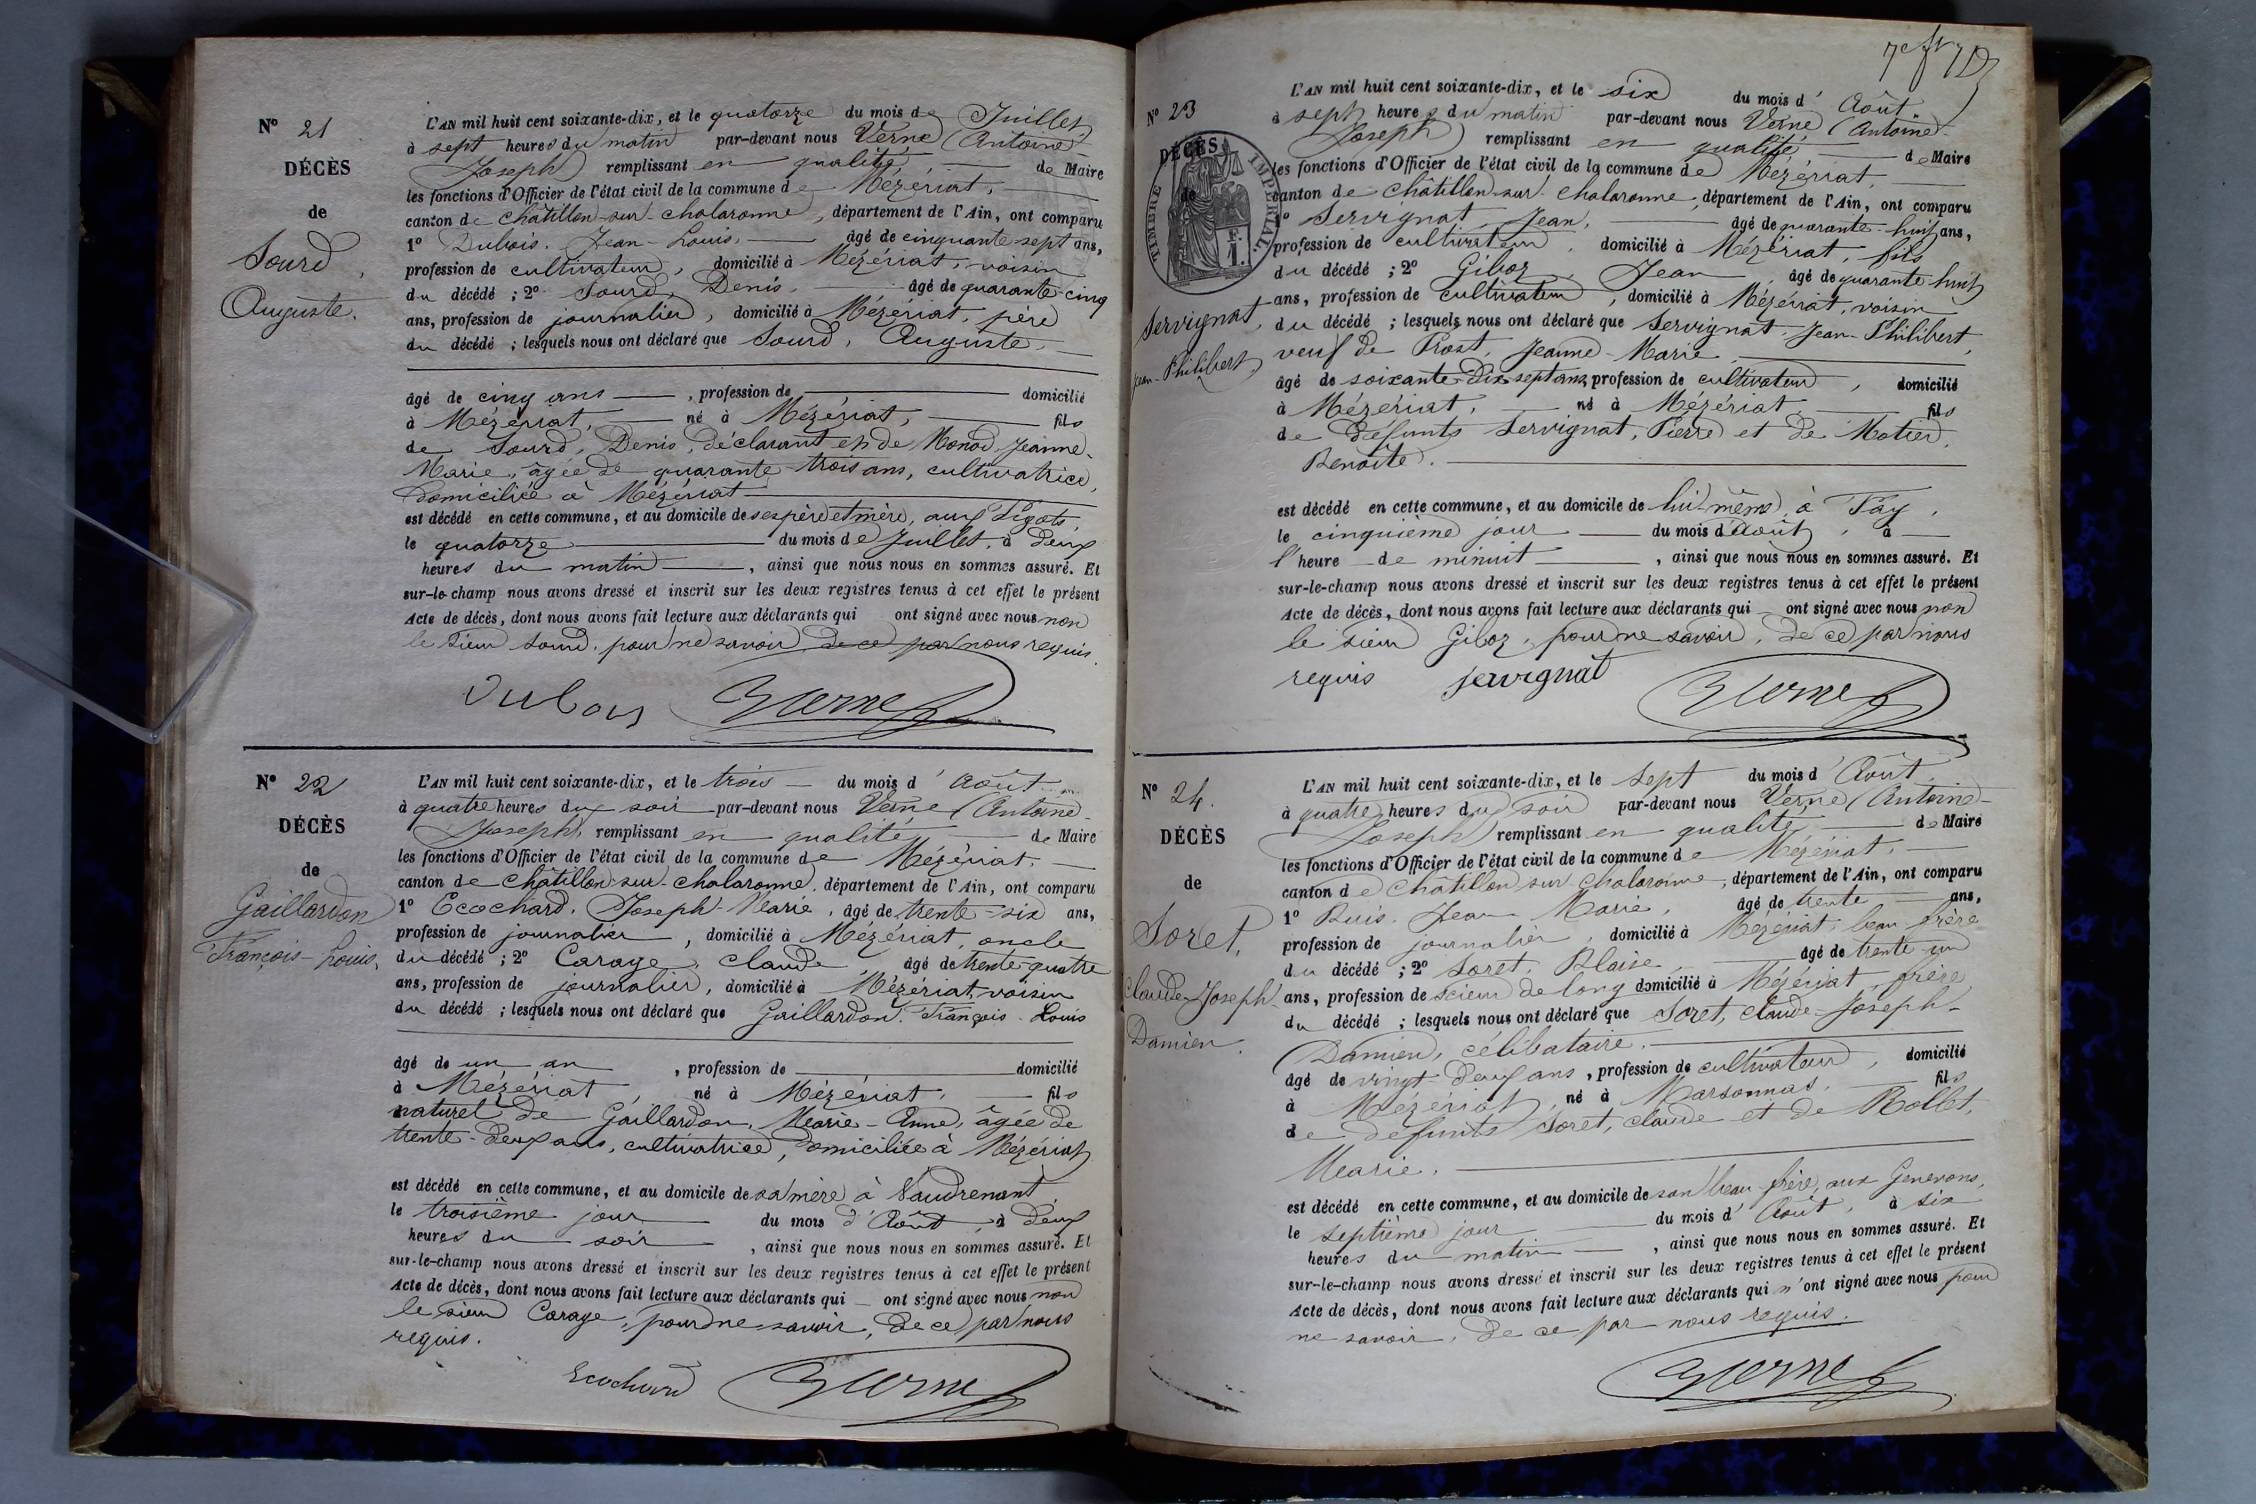 N° 21
DÉCÈS
de
Sourd,
Auguste.
L'AN mil huit cent soixante-dix, et le quatorze du mois de Juillet,
à sept heures du matin par-devant nous Verne (Antoine-
Joseph) remplissant en qualité de Maire
les fonctions d'Officier de l'état civil de la commune de Mézériat,
canton de Châtillon-sur-Chalaronne, département de l'Ain, ont comparu
1° Dubois, Jean-Louis, âgé de cinquante-sept ans,
profession de cultivateur, domicilié à Mézériat, voisin
du décédé ; 2° Sourd, Denis, âgé de quarante-cinq
ans, profession de journalier, domicilié à Mézériat, père
du décédé ; lesquels nous ont déclaré que Sourd, Auguste,
âgé de cinq ans, profession de domicilié
à Mézériat, né à Mézériat, fils
de Sourd, Denis, déclarant et de Monod, Jeanne-
Marie, âgée de quarante-trois ans, cultivatrice,
domiciliée à Mézériat
est décédé en cette commune, et au domicile de ses père et mère, aux Ligots,
le quatorze du mois de Juillet, à deux
heures du matin, ainsi que nous nous en sommes assuré. Et
sur-le-champ nous avons dressé et inscrit sur les deux registres tenus à cet effet le présent
Acte de décès, dont nous avons fait lecture aux déclarants qui ont signé avec nous non
le sieur Sourd, pour ne savoir, de ce par nous requis.
Dubois Verne
N° 22
DÉCÈS
de
Gaillardon
François-Louis,
L'AN mil huit cent soixante-dix, et le trois du mois d'Août
à quatre heures du soir par-devant nous Verne (Antoine-
Joseph) remplissant en qualité de Maire
les fonctions d'Officier de l'état civil de la commune de Mézériat,
canton de Châtillon-sur-Chalaronne, département de l'Ain, ont comparu
1° Ecochard, Joseph-Marie, âgé de trente-six ans,
profession de journalier, domicilié à Mézériat, oncle
du décédé ; 2° Carage, Claude, âgé de trente-quatre
ans, profession de journalier, domicilié à Mézériat, voisin
du décédé ; lesquels nous ont déclaré que Gaillardon, François-Louis
âgé de un an, profession de domicilié
à Mézériat, né à Mézériat, fils
naturel de Gaillardon, Marie-Anne, âgée de
trente-deux ans, cultivatrice, domiciliée à Mézériat
est décédé en cette commune, et au domicile de sa mère à Vaudrenant
le troisième jour du mois d'Août, à deux
heures du soir, ainsi que nous nous en sommes assuré. Et
sur-le-champ nous avons dressé et inscrit sur les deux registres tenus à cet effet le présent
Acte de décès, dont nous avons fait lecture aux déclarants qui ont signé avec nous non
le sieur Carage, pour ne savoir, de ce par nous
requis.
Ecochard Verne
N° 23
DÉCÈS
de
TIMBRE IMPÉRIAL
F.
1.
Servignat,
Jean-Philibert,
L'AN mil huit cent soixante-dix, et le six du mois d'Août
à sept heures du matin par-devant nous Verne (Antoine-
Joseph) remplissant en qualité de Maire
les fonctions d'Officier de l'état civil de la commune de Mézériat,
canton de Châtillon-sur-Chalaronne, département de l'Ain, ont comparu
1° Servignat, Jean, âgé de quarante-huit ans,
profession de cultivateur, domicilié à Mézériat, fils
du décédé ; 2° Giboz, Jean, âgé de quarante-huit
ans, profession de cultivateur, domicilié à Mézériat, voisin
du décédé ; lesquels nous ont déclaré que Servignat, Jean-Philibert,
veuf de Prost, Jeanne-Marie
âgé de soixante-dix-sept ans, profession de cultivateur, domicilié
à Mézériat, né à Mézériat, fils
de défunts Servignat, Pierre et de Motier,
Benoîte.
est décédé en cette commune, et au domicile de lui-même, à Fay,
le cinquième jour du mois d'Août, à
l'heure de minuit, ainsi que nous nous en sommes assuré. Et
sur-le-champ nous avons dressé et inscrit sur les deux registres tenus à cet effet le présent
Acte de décès, dont nous avons fait lecture aux déclarants qui ont signé avec nous non
le sieur Giboz, pour ne savoir, de ce par nous
requis Servignat Verne
N° 24.
DÉCÈS
de
Soret,
Claude-Joseph-
Damien.
L'AN mil huit cent soixante-dix, et le sept du mois d'Août
à quatre heures du soir par-devant nous Verne (Antoine-
Joseph) remplissant en qualité de Maire
les fonctions d'Officier de l'état civil de la commune de Mézériat,
canton de Châtillon-sur-Chalaronne, département de l'Ain, ont comparu
1° Buis, Jean Marie, âgé de trente ans,
profession de journalier, domicilié à Mézériat, beau-frère
du décédé ; 2° Soret, Blaise, âgé de trente-un
ans, profession de scieur de long domicilié à Mézériat, frère
du décédé ; lesquels nous ont déclaré que Soret, Claude-Joseph-
Damien, célibataire.
âgé de vingt-deux ans, profession de cultivateur, domicilié
à Mézériat, né à Marsonnas, fils
de défunts Soret, Claude et de Rollet,
Marie.
est décédé en cette commune, et au domicile de son beau-frère, aux Genevons,
le septième jour du mois d'Août, à six
heures du matin, ainsi que nous nous en sommes assuré. Et
sur-le-champ nous avons dressé et inscrit sur les deux registres tenus à cet effet le présent
Acte de décès, dont nous avons fait lecture aux déclarants qui n'ont signé avec nous pour
ne savoir, de ce par nous requis.
Verne